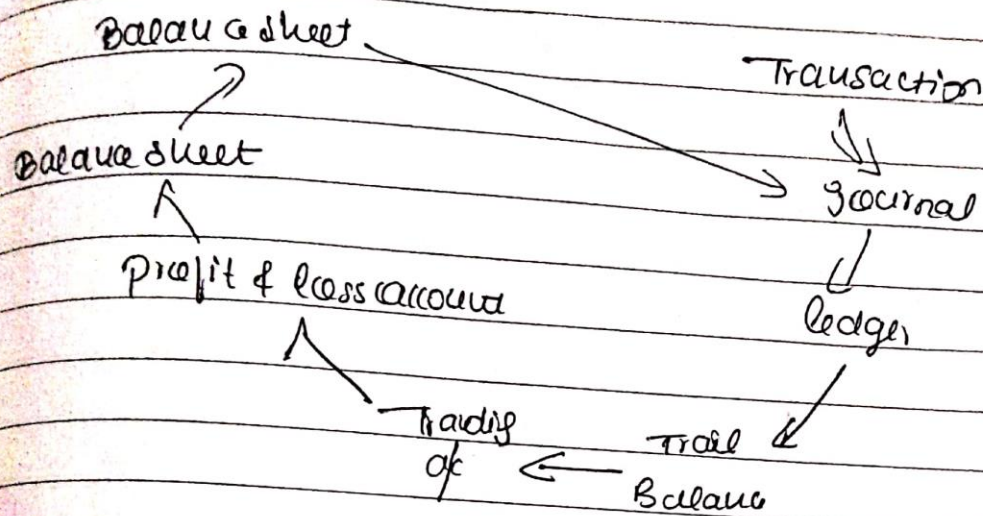 Balance sheet
Transaction
Balance sheet
Journal
Profit & loss account
ledger
Trading
a/c
Trail
Balance